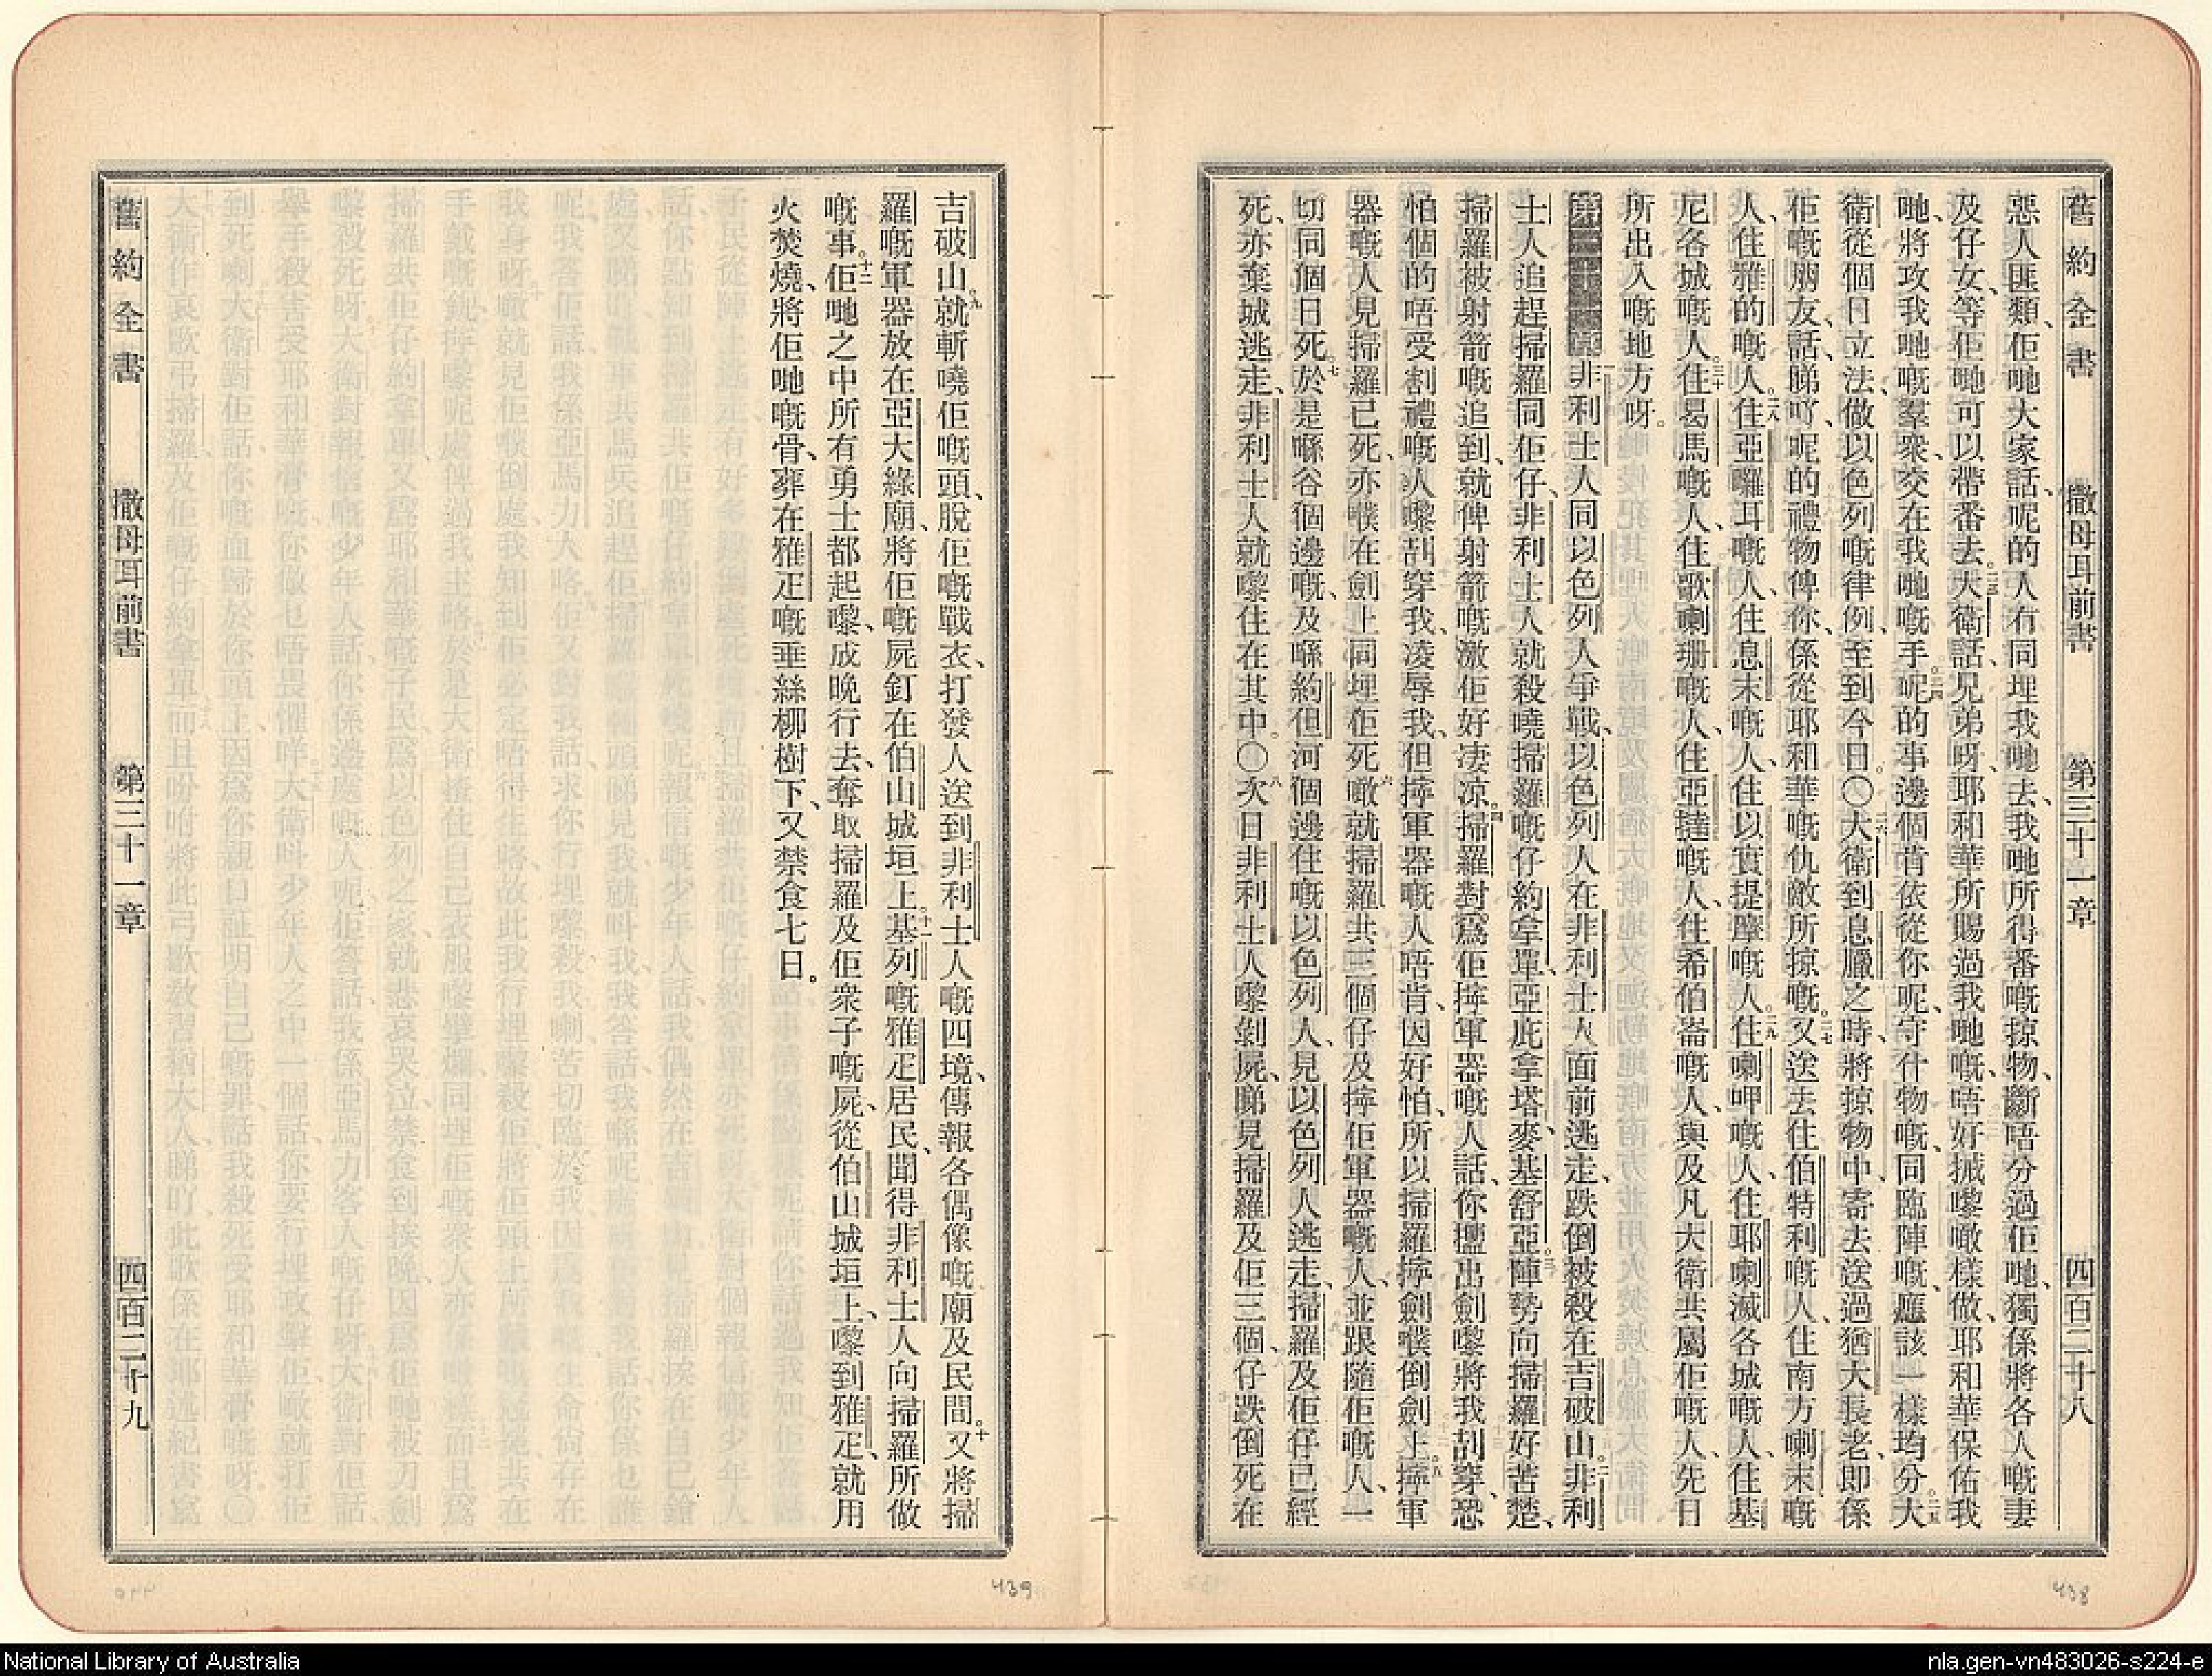 舊約全書 撒母耳前書 第三十一章 四百二十八
惡人匪類、佢哋大家話、呢的人冇同埋我哋去、我哋所得番嘅掠物、斷唔分過佢哋、獨係將各人嘅妻
及仔女、等佢哋可以帶番去。二三大衛話、兄弟呀、耶和華所賜過我哋嘅、唔好搣嚟噉樣做、耶和華保佑我
哋、將攻我哋嘅羣衆、交在我哋嘅手。二四呢的事邊個肯依從你呢、守什物嘅、同臨陣嘅、應該一樣均分。二五大
衛從個日立法、做以色列嘅律例、至到今日。〇二六大衛到息臘之時、將掠物中、寄去送過猶大長老、即係
佢嘅朋友、話、睇吖、呢的禮物俾你、係從耶和華嘅仇敵所掠嘅。二七又送去住伯特利嘅人、住南方喇末嘅
人、住雅的嘅人。二八住亞囉耳嘅人、住息末嘅人、住以實提摩嘅人。二九住喇呷嘅人、住耶喇滅各城嘅人、住基
尼各城嘅人。三十住曷馬嘅人、住歌喇珊嘅人、住亞撻嘅人、住希伯崙嘅人、與及凡大衛共屬佢嘅人、先日
所出入嘅地方呀。
第三十一章 非利士人同以色列人爭戰、以色列人在非利士人面前逃走、跌倒被殺在吉破山。二非利
士人追趕掃羅同佢仔、非利士人就殺嘵掃羅嘅仔約拿單、亞庇拿塔、麥基舒亞。三陣勢向掃羅好苦楚、
掃羅被射箭嘅追到、就俾射箭嘅激佢好淒凉。四掃羅對爲佢擰軍器嘅人話、你搵出劍嚟將我刮穿、恐
怕個的唔受割禮嘅人嚟刮穿我、凌辱我、但擰軍器嘅人唔肯、因好怕、所以掃羅擰劍噗倒劍上。五擰軍
器嘅人見掃羅已死、亦噗在劍上同埋佢死。六噉就掃羅共三個仔及擰佢軍器嘅人、並跟隨佢嘅人、一
切同個日死。七於是喺谷個邊嘅、及喺約但河個邊住嘅以色列人、見以色列人逃走、掃羅及佢仔已經
死、亦棄城逃走、非利士人就嚟住在其中。〇八次日非利士人嚟剝屍、睇見掃羅及佢三個仔跌倒死在
438
吉破山。九就斬嘵佢嘅頭、脫佢嘅戰衣、打發人送到非利士人嘅四境、傳報各偶像嘅廟及民間。十又將掃
羅嘅軍器放在亞大綠廟、將佢嘅屍釘在伯山城垣上。十一基列嘅雅疋居民、聞得非利士人向掃羅所做
嘅事。十二佢哋之中所有勇士都起嚟、成晚行去、奪取掃羅及佢衆子嘅屍、從伯山城垣上、嚟到雅疋、就用
火焚燒、將佢哋嘅骨、葬在雅疋嘅垂絲柳樹下、又禁食七日。
舊約全書 撒母耳前書 第三十一章 四百二十九
439
National Library of Australia
nla.gen-vn483026-s224-e